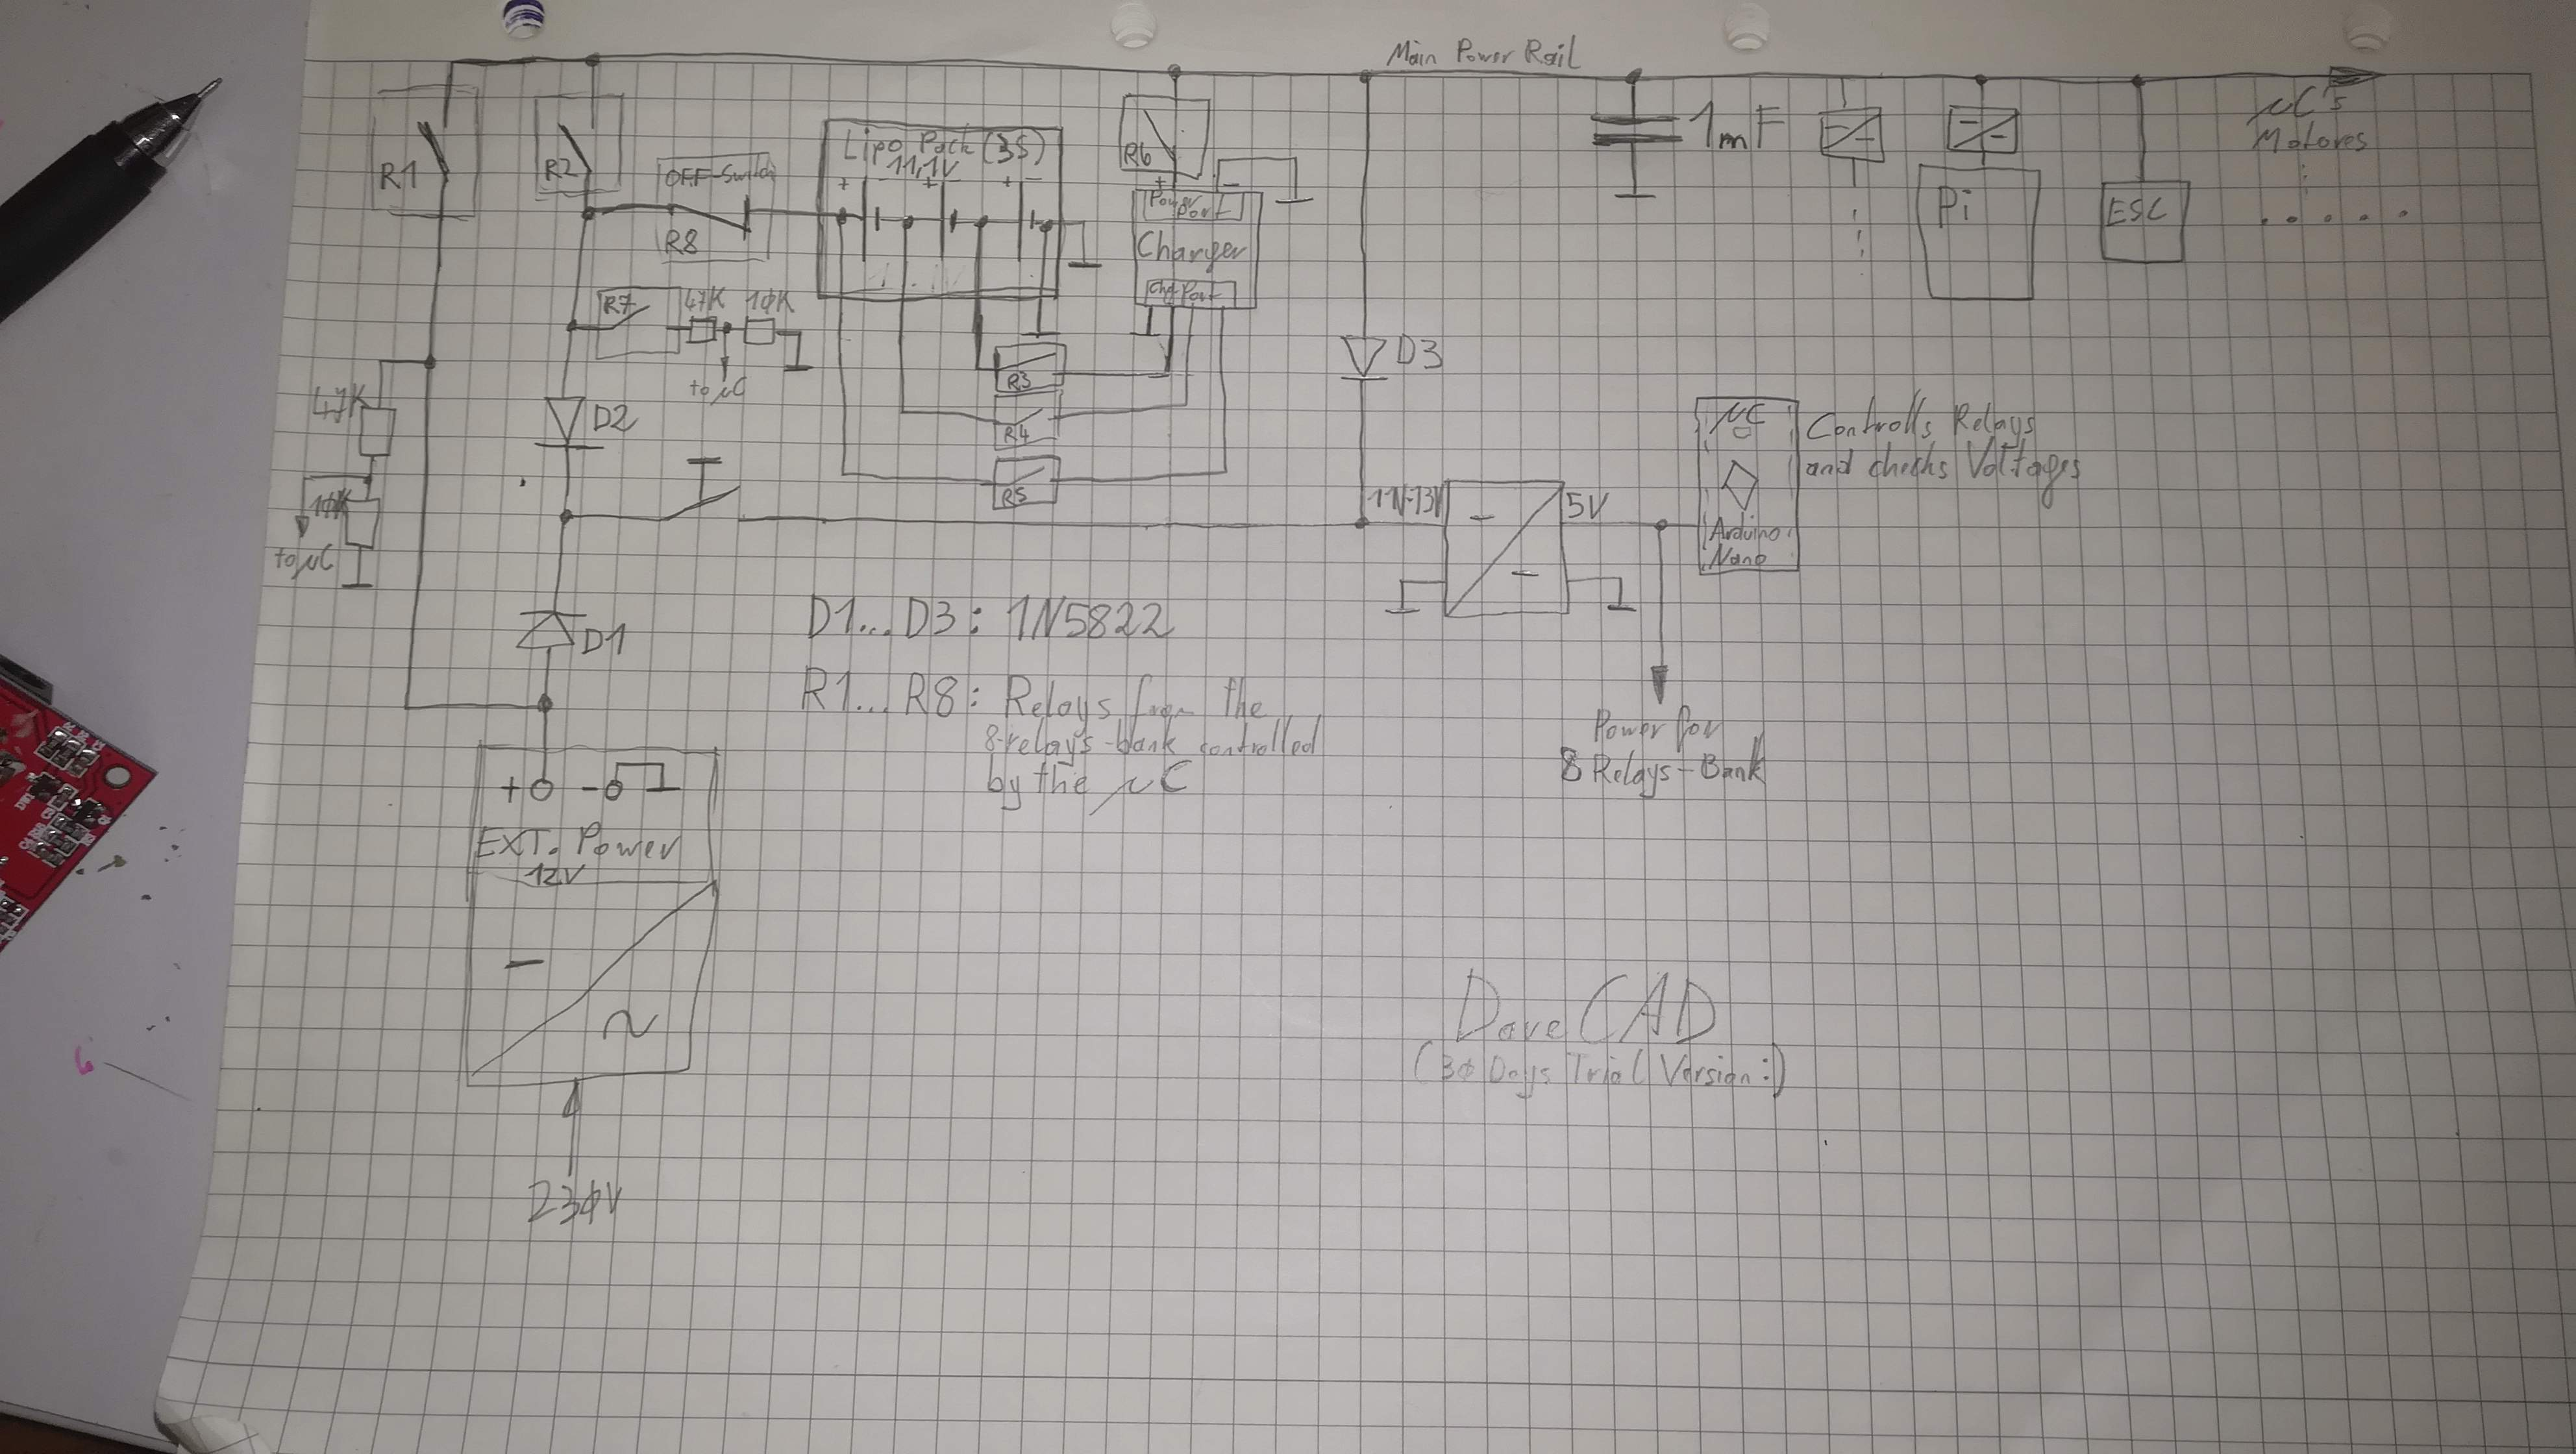 Main Power Rail
R1
R2
OFF-Switch
R8
Lipo Pack (3S)
11,1V
+ - + - + -
R6
+ -
Power
Port
Charger
Chg Port
1mF
Pi
ESC
μC's
Motores
R7
47K
10K
to μC
R3
R4
R5
D3
47K
10K
to μC
D2
11V-13V
5V
μC
Arduino
Nano
Controlls Relays
and checks Voltages
D1
D1...D3: 1N5822
R1...R8: Relays from the
8-relays-bank controlled
by the μC
Power for
8 Relays-Bank
+ -
EXT. Power
12V
230V
DaveCAD
(30 Days Trial Version:)